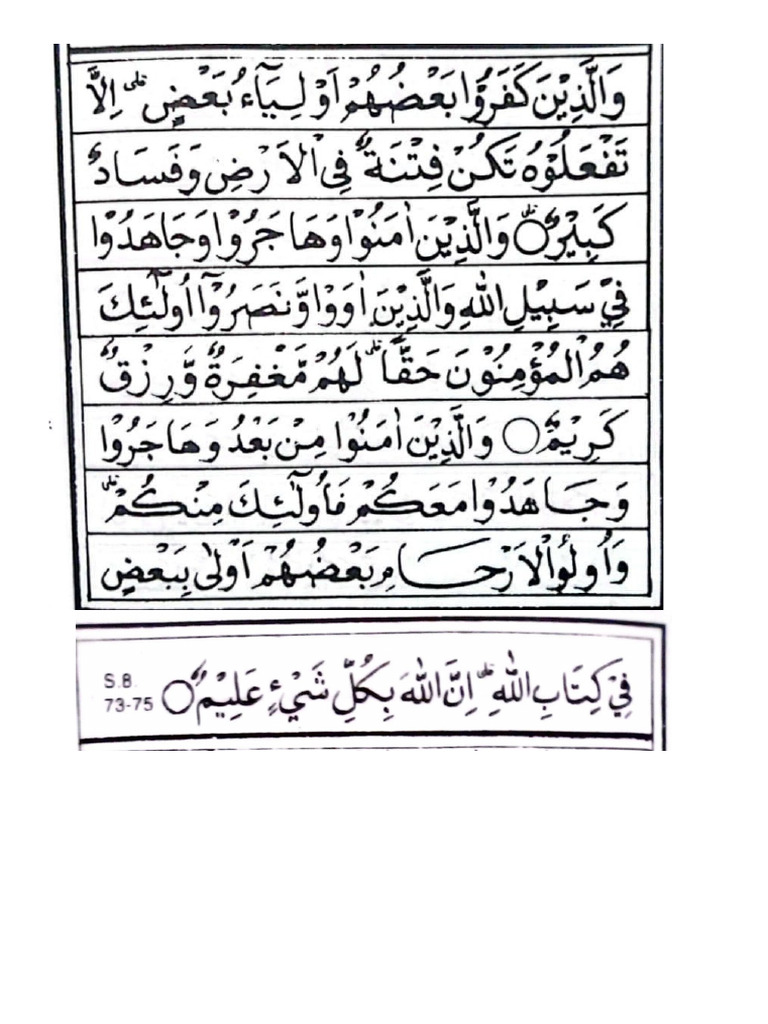 وَالَّذِيْنَ كَفَرُوْا بَعْضُهُمْ اَوْلِيَآءُ بَعْضٍ ؕ اِلَّا
تَفْعَلُوْهُ تَكُنْ فِتْنَةٌ فِي الْاَرْضِ وَفَسَادٌ
كَبِيْرٌ ○ وَالَّذِيْنَ اٰمَنُوْا وَهَاجَرُوْا وَجَاهَدُوْا
فِيْ سَبِيْلِ اللهِ وَالَّذِيْنَ اٰوَوْا وَّنَصَرُوْٓا اُولٰٓئِكَ
هُمُ الْمُؤْمِنُوْنَ حَقًّا ؕ لَهُمْ مَّغْفِرَةٌ وَّرِزْقٌ
كَرِيْمٌ ○ وَالَّذِيْنَ اٰمَنُوْا مِنْۢ بَعْدُ وَهَاجَرُوْا
وَجَاهَدُوْا مَعَكُمْ فَاُولٰٓئِكَ مِنْكُمْ ؕ
وَاُولُوا الْاَرْحَامِ بَعْضُهُمْ اَوْلٰى بِبَعْضٍ
فِيْ كِتَابِ اللهِ ؕ اِنَّ اللهَ بِكُلِّ شَيْءٍ عَلِيْمٌ ○ S.8. 73-75